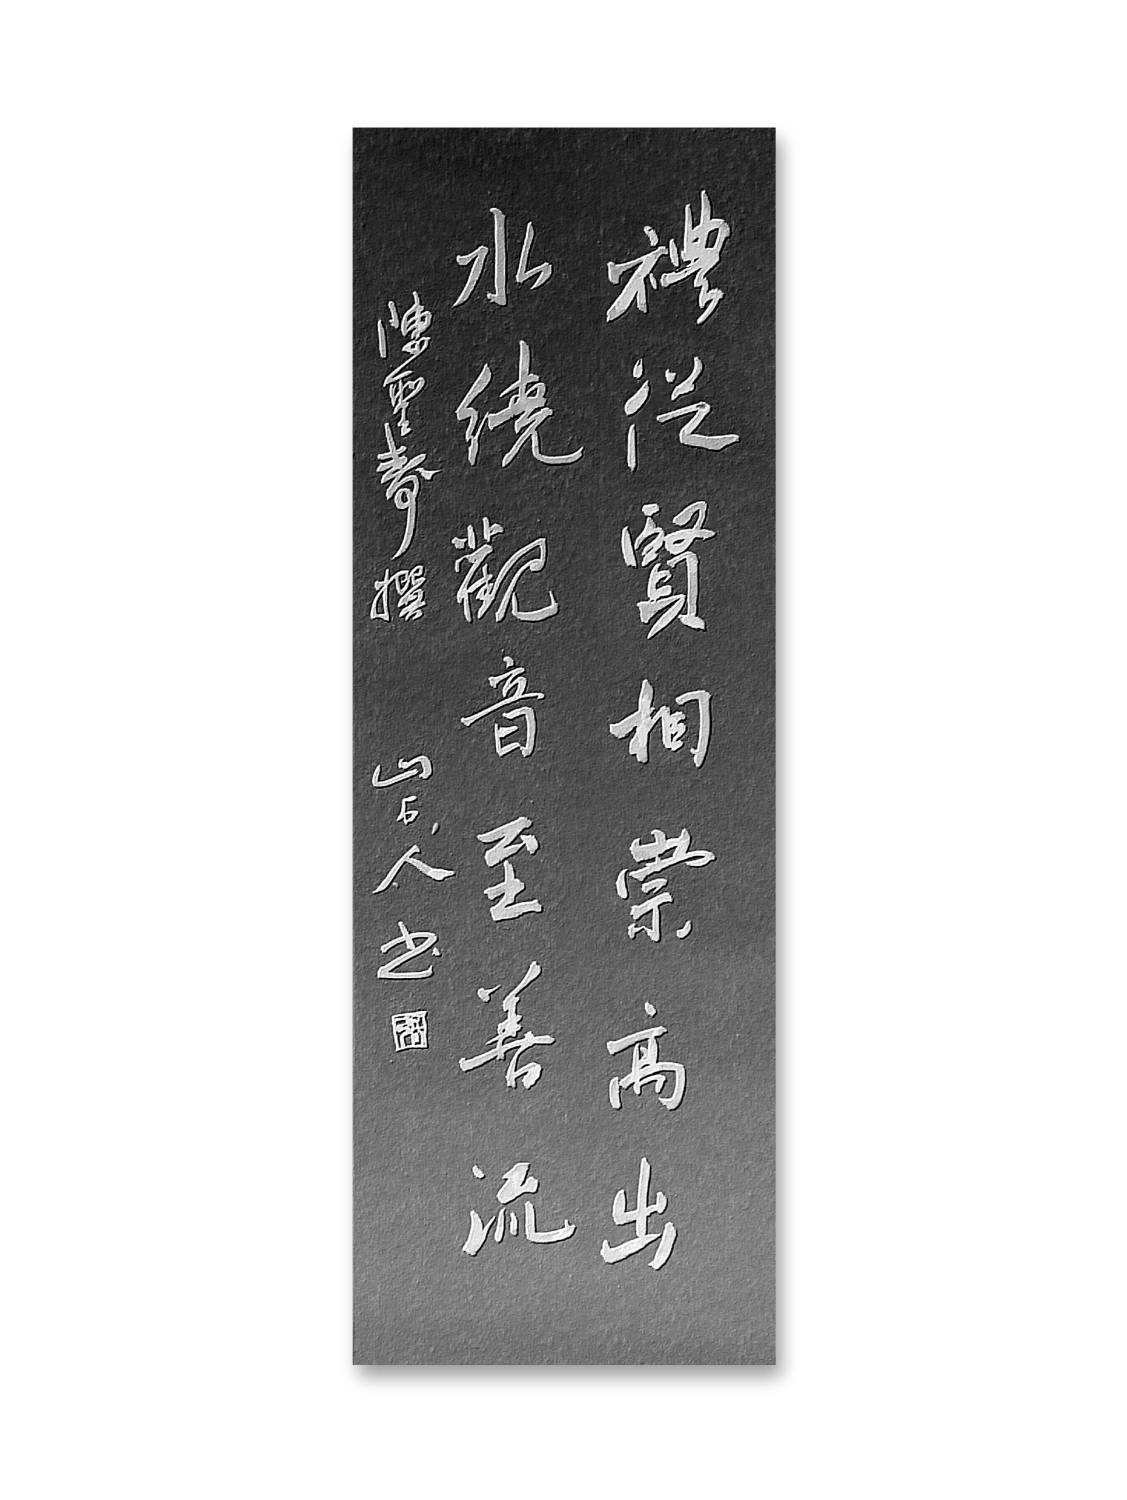 禮從賢相崇高出
水繞觀音至善流
陳聖壽撰 山石人书